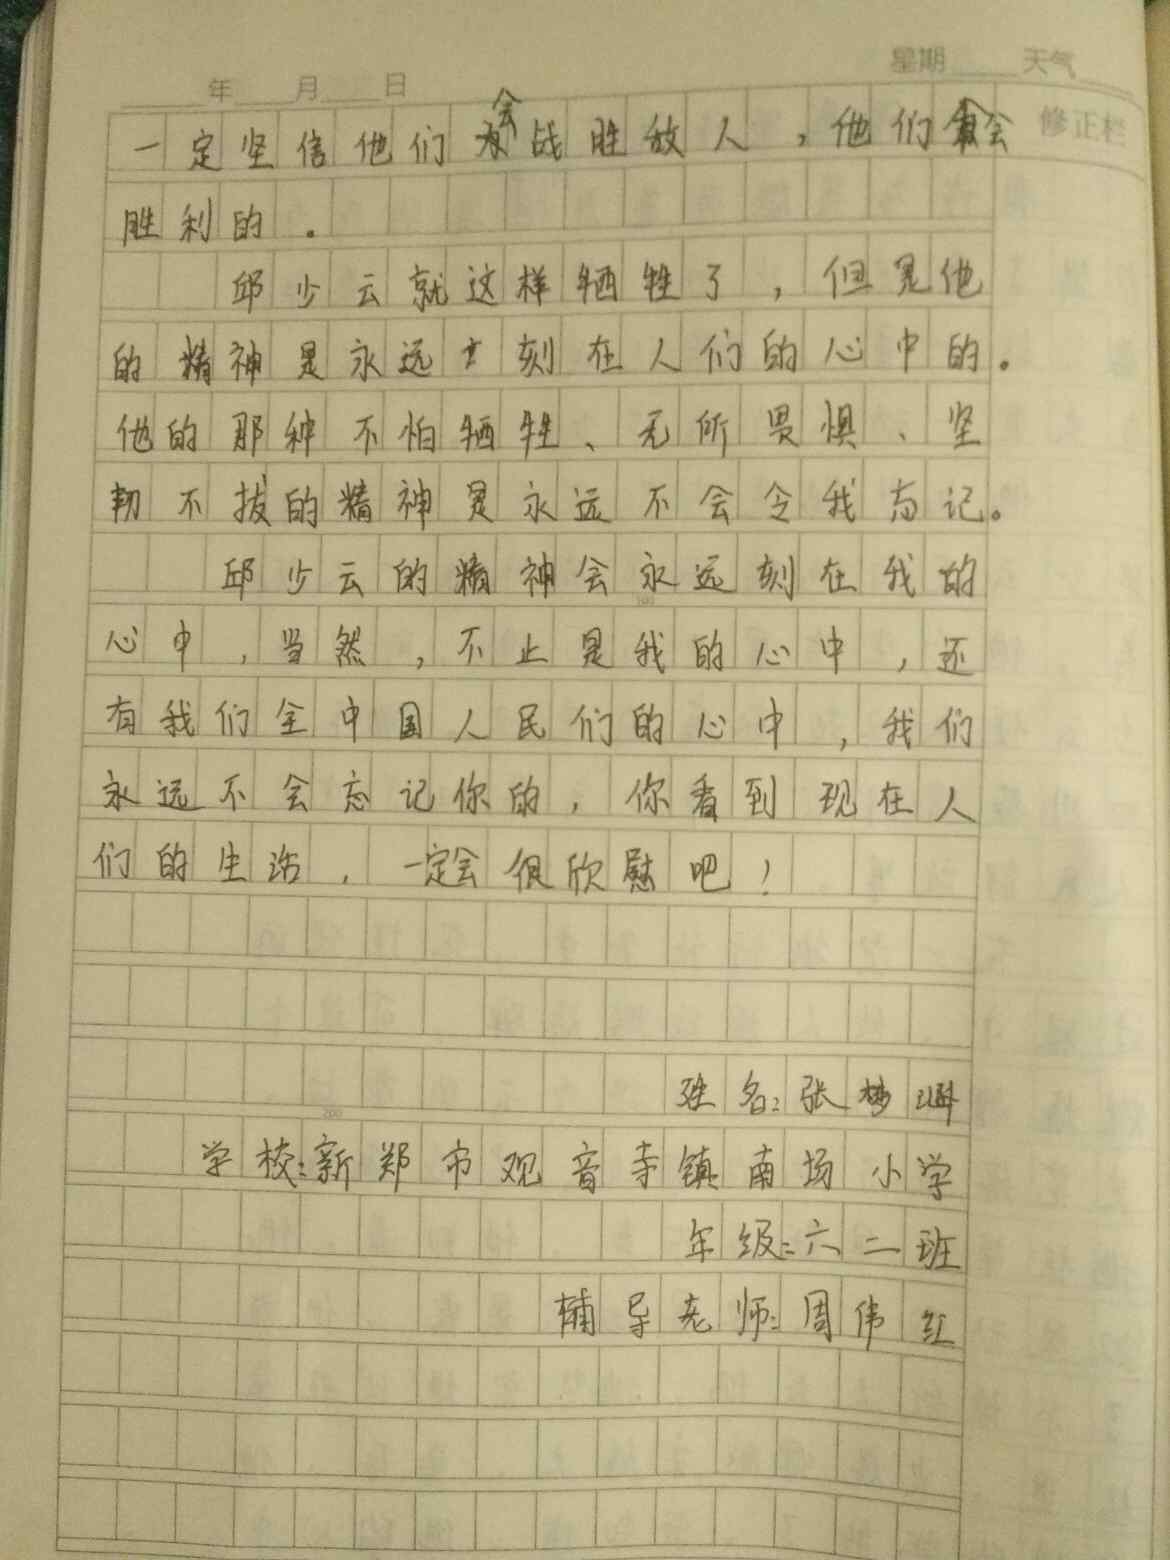 年 月 日 星期 天气
修正栏
一定坚信他们会战胜敌人，他们会
胜利的。
邱少云就这样牺牲了，但是他
的精神是永远刻在人们的心中的。
他的那种不怕牺牲、无所畏惧、坚
韧不拔的精神是永远不会令我忘记。
邱少云的精神会永远刻在我的
心中，当然，不止是我的心中，还
有我们全中国人民们的心中，我们
永远不会忘记你的，你看到现在人
们的生活，一定会很欣慰吧！
姓名：张梦
200
学校：新郑市观音寺镇南场小学
年级：六二班
辅导老师：周伟红